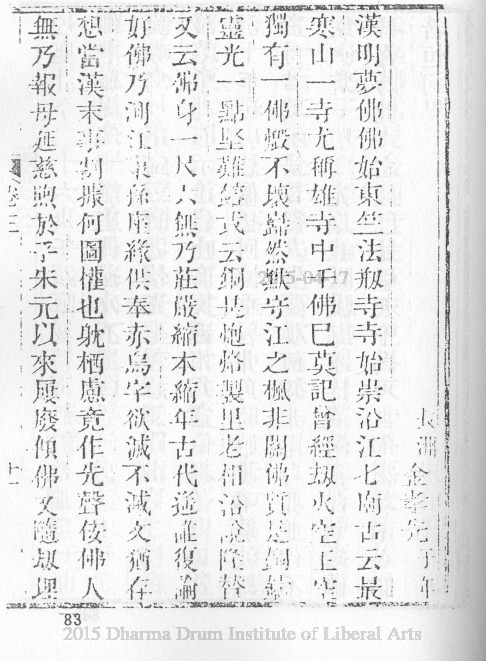 長洲金孝先于年
漢明夢佛佛始東竺法叛寺寺始崇沿江七廟古云最
寒山一寺尤稱雄寺中千佛已莫記曾經刼火空王空
獨有一佛燬不壞巋然獄守江之楓非關佛質是銅鑄
靈光一點堅難鎔或云銅是炮烙製里老相沿說隆替
又云佛身一尺六無乃莊嚴縮本縮年古代遙誰復論
好佛乃湖江東孫座緣供奉赤烏字欲滅不滅文猶存
想當漢末事割據何圖權也躭栖慮竟作先聲佞佛人
無乃報母延慈煦於乎朱元以來屢廢傾佛又隨刼埋
卷三
十一
83
2015-04-17
2015 Dharma Drum Institute of Liberal Arts